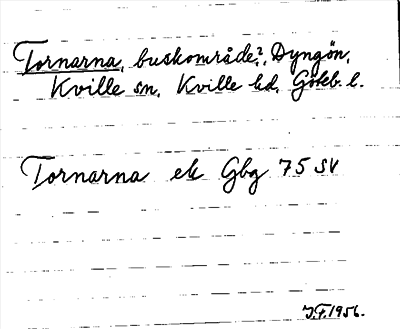 Tornarna, buskområde?, Dyngön,
Kville sn, Kville hd, Göteb. l.
Tornarna ek Gbg 75 SV
J.F. 1956.